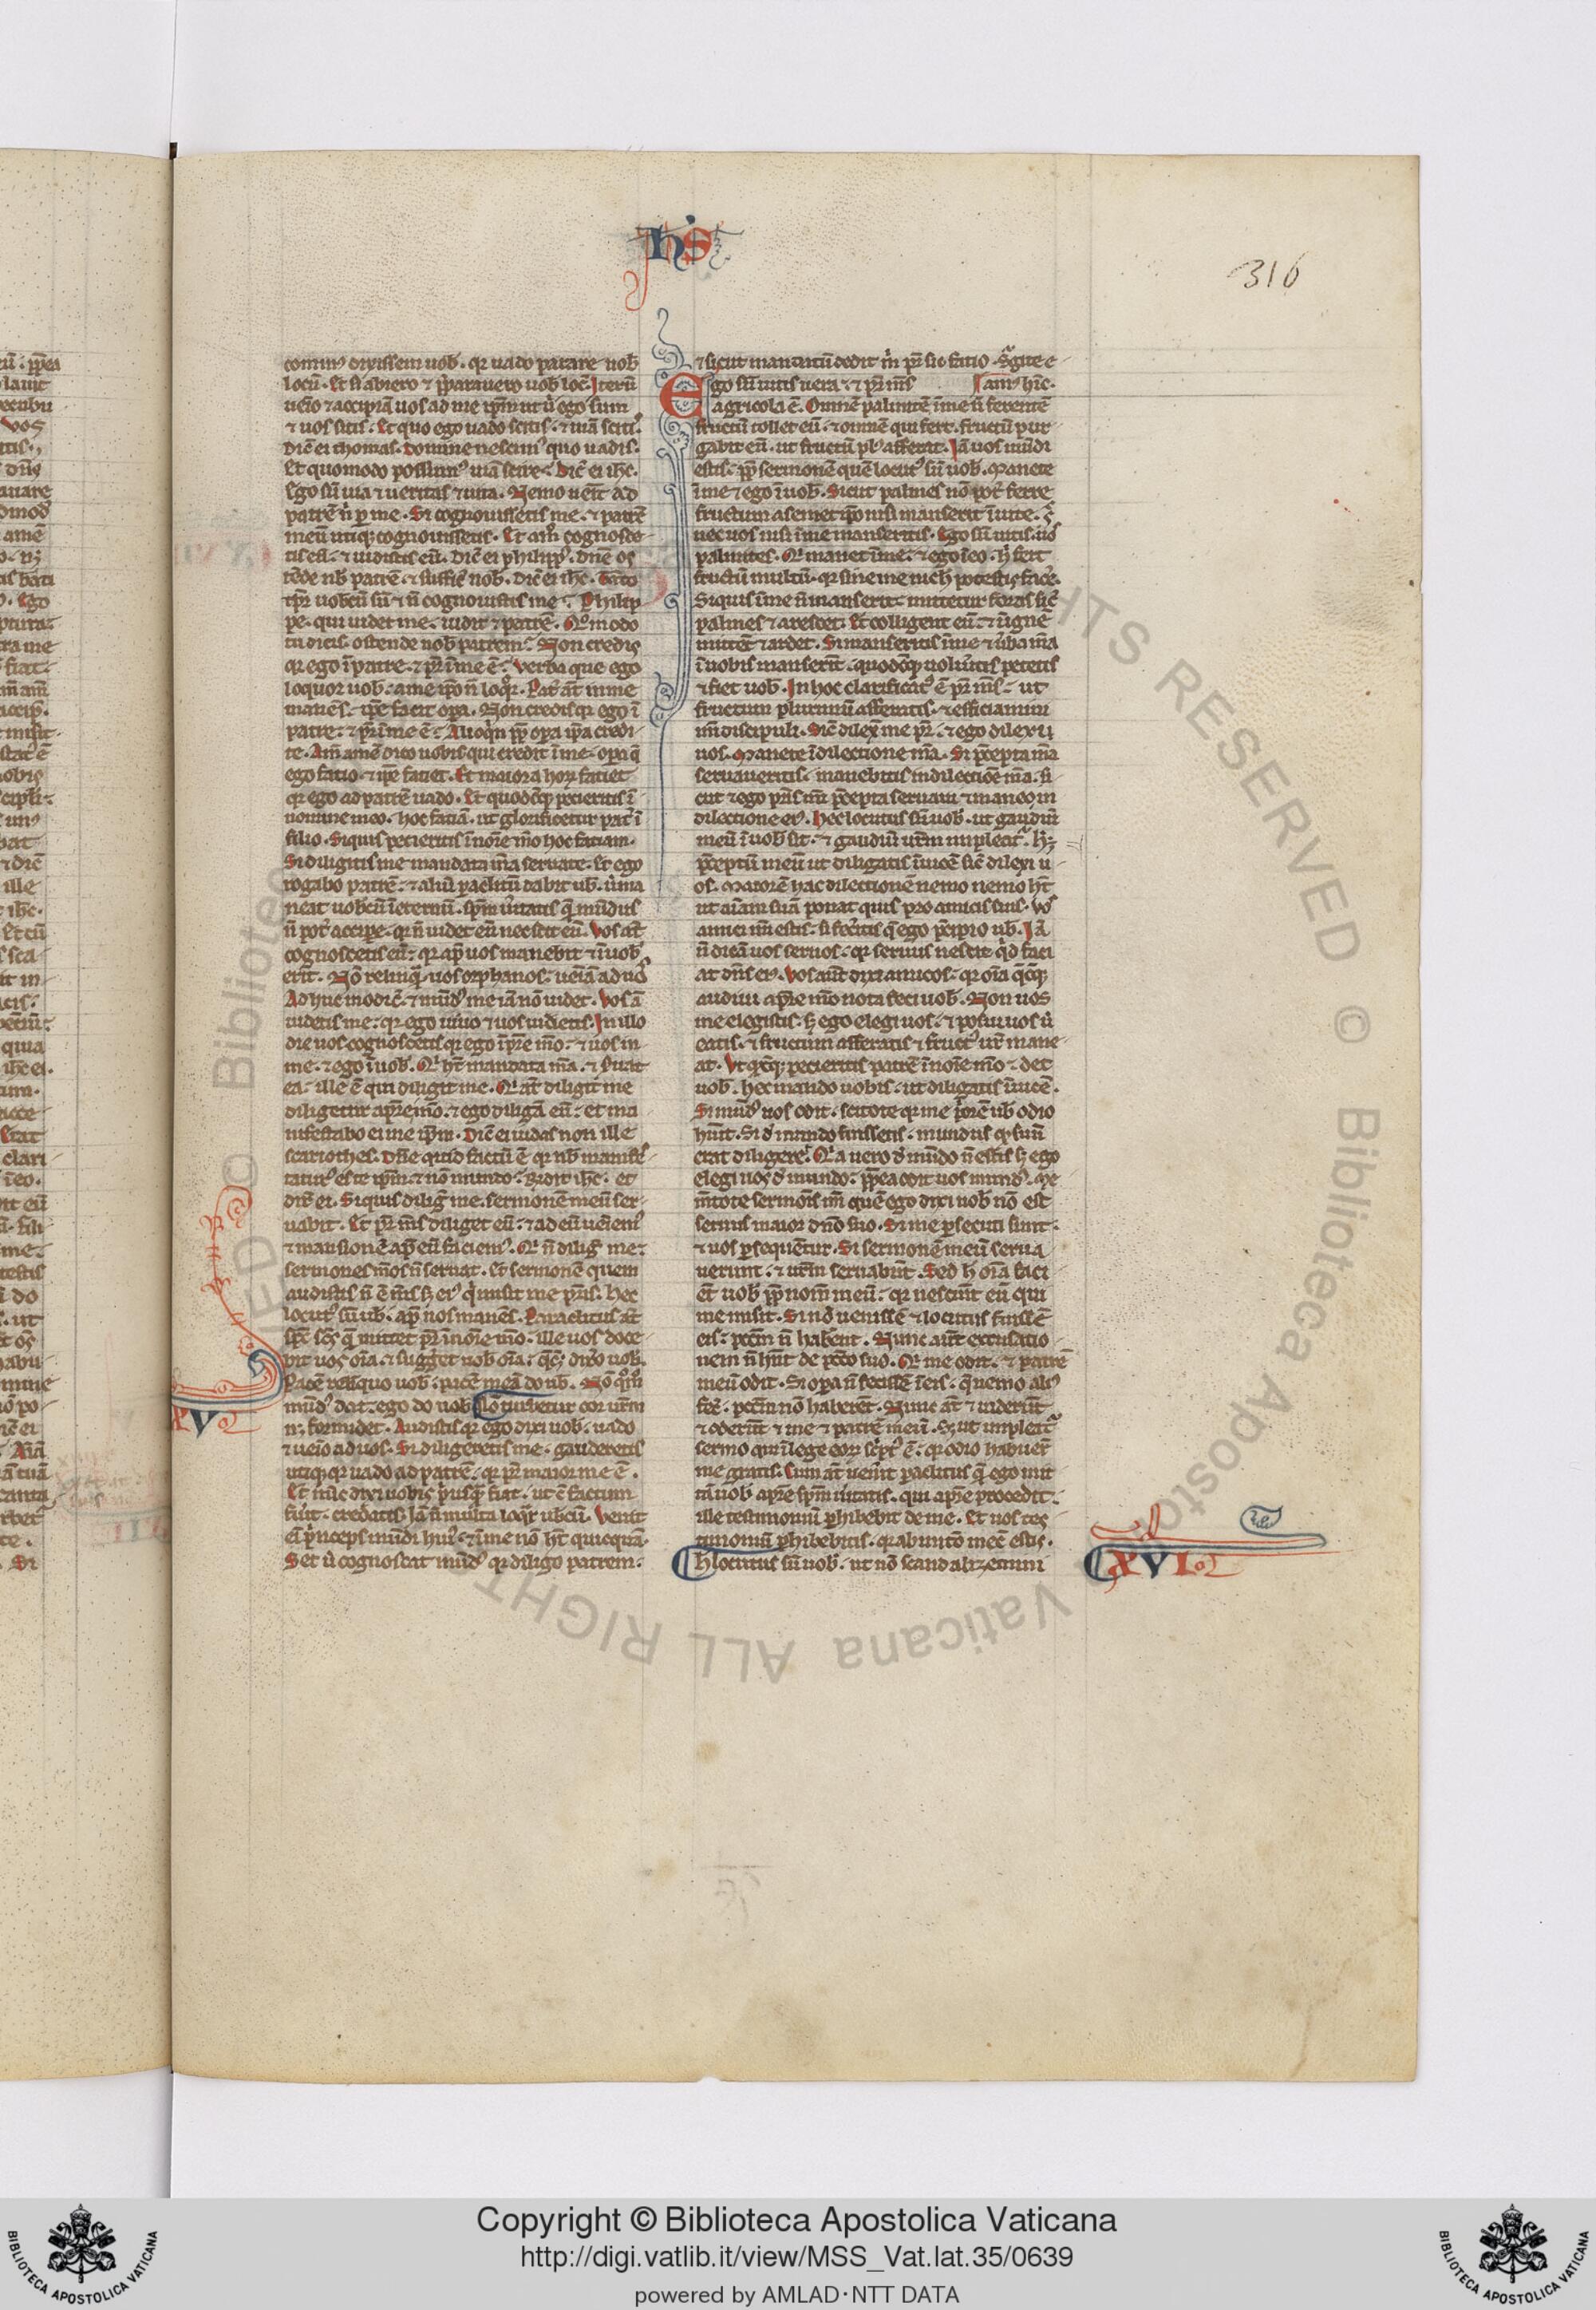 hS
316
comin⁹ dixissem uob̄. qr uado parare uob̄
locū. Et si abiero ⁊ p̄parauero uob̄ locū. Iterū
uēio ⁊ accipiā uos ad me ip̄m ut ubi ego sum
⁊ uos sitis. Et quo ego uado scitis. ⁊ uiā scitis.
Dic̄ ei thomas. Domine nescim⁹ quo uadis.
Et quomodo possum⁹ uiā scire. Dic̄ ei ih̄c.
Ego sū uia ⁊ ueritas ⁊ uita. Nemo uēit ad
patrē n̄ p me. Si cognouissetis me. ⁊ patrē
meū utiq; cognouissetis. Et am̄ cognosce
tis eū. ⁊ uidistis eū. Dic̄ ei philipp⁹. dn̄e os
tēde nb̄ patrē. ⁊ suffic̄ nob̄. Dic̄ ei ih̄c. Tāto
tp̄r uobcū sū ⁊ n̄ cognouistis me. Philip
pe. qui uidet me. uidit ⁊ patrē. Qomodo
tu dicis. ostende nob̄ patrem. Non credis
qr ego ī patre. ⁊ pr̄ ī me ē. Verba que ego
loquor uob̄. a me ip̄o n̄ loq̄r. Pat̄ at̄ in me
manēs. ip̄e facit opa. Non credis qr ego ī
patre. ⁊ pr̄ ī me ē. Alioq̄n pp̄ opa ip̄a credi
te. Am̄ amē dico uobis qui credit ī me. opa q̄
ego facio. ⁊ ip̄e faciet. Et maiora hoꝝ faciet
qr ego ad patrē uado. Et quodcūq; petieritis ī
nomine meo. hoc faciā. ut glorificetur pat̄ ī
filio. Si quis petieritis ī noīe m̄o hoc faciam.
Si diligitis me mandata m̄a seruate. Et ego
rogabo patrē. ⁊ aliū paclitū dabit ub̄. ut ma
neat uobcū ī eternū. sp̄m u̇itatis q̄ mūdus
n̄ pot̄ accipe. qr n̄ uidet eū nec scit eū. Vos at̄
cognoscetis eū. qr ap̄ uos manebit ⁊ ī uob̄
erit. Nō relinq̄ uos orphanos. ueīā ad uos
Adhuc modic̄. ⁊ mūd⁹ me iā nō uidet. Vos at̄
uidetis me. qr ego uiuo ⁊ uos uidietis. In illo
die uos cognoscetis qr ego ī pr̄e m̄o. ⁊ uos in
me. ⁊ ego ī uob̄. Qi hēt mandata m̄a. ⁊ seruat
ea. ille ē qui diligit me. Qi at̄ diligit me
diligetur a pr̄e m̄o. ⁊ ego diligā eū. et ma
nifestabo ei me ip̄m. Dic̄ ei iudas non ille
scariothes. Dn̄e quid factū ē qr nb̄ manifes
taturus es te ip̄m. ⁊ nō mundo. Rn̄dit ih̄c. et
dix̄ ei. Si quis diliḡ me. sermonē meū ser
uabit. Et pr̄ m̄s diliget eū. ⁊ ad eū ueiem⁹
⁊ mansionē ap̄ eū faciem⁹. Qi n̄ diliḡ me.
sermones m̄os n̄ seruat. Et sermonē quem
audistis n̄ ē m̄s s; ei⁹ q̄ misit me pr̄is. Hec
locut⁹ sū ub̄. ap̄ uos manēs. Paraclitus at̄
sp̄c sc̄s q̄ mittet pr̄ ī noīe m̄o. ille uos doce
bit uos oīa. ⁊ sugget uob̄ oīa. q̄c; dixo uob̄.
Pacē relīquo uob̄. pacē meā do ub̄. Nō q̄m̄
mūd⁹ dat. ego do uob̄. Nō turbetur cor urm̄
n; formidet. Audistis qr ego dixi uob̄. uado
⁊ ueīo ad uos. Si diligeretis me. gauderetis
utiq; qr uado ad patrē. qr pr̄ maior me ē.
Et nūc dixi uobis p̄usq̄ fiat. ut cū factum
fūit. credatis. Iā n̄ multa loq̄r ubcū. Venit
ei p̄nceps mūdi hui⁹. ⁊ ī me nō hēt quicquā.
Set ut cognoscat mūd⁹ qr diligo patrem.
XV
⁊ sicut mandatū dedit m̄ pr̄ sic facio. Sgite e
Ego sū uitis uera ⁊ pr̄ m̄s
amus hīc.
agricola ē. Omnē palmitē ī me n̄ ferentē
fructū tollet eū. ⁊ omnē qui fert. fructū pur
gabit eū. ut fructū pl⁹ afferat. Iā uos mūdi
estis. pp̄ sermonē quē locut⁹ sū uob̄. Manete
ī me ⁊ ego ī uob̄. Sicut palmes nō pot̄ ferre
fructum a semet ip̄o nisi manserit ī uite. sic̄
nec uos nisi ī me manseritis. Ego sū uitis. uos
palmites. Qi manet ī me. ⁊ ego ī eo. h̄ fert
fructū multū. qr sine me nich̄ potestis face.
Si quis ī me n̄ manserit. mittetur foras sic̄
palmes ⁊ arescet. Et colligent eū. ⁊ ī ignē
mittēt ⁊ ardet. Si manseritis ī me ⁊ u̇ba m̄a
ī uobis manserīt. quodcūq; uolu̇itis petetis
⁊ fiet uob̄. In hoc clarificat⁹ ē pr̄ m̄s. ut
fructum plurimū afferatis. ⁊ efficiamini
m̄i discipuli. Sic̄ dilex̄ me pr̄. ⁊ ego dilexi
uos. Manete ī dilectione m̄a. Si p̄cepta m̄a
seruaueritis. manebitis in dilectiōe m̄a. si
cut ⁊ ego pr̄is m̄i p̄cepta seruaui ⁊ maneo in
dilectione ei⁹. Hec locutus sū uob̄. ut gaudiū
meū ī uob̄ sit. ⁊ gaudiū urm̄ impleat̄. h̄ ē
p̄ceptū meū ut diligatis īuicē sic̄ dilexi u
os. Maiorē hac dilectionē nemo nemo hēt
ut aīam suā ponat quis pro amicis suis. Vos
amici m̄i estis. si fec̄itis q̄ ego p̄cipio ub̄. Iā
n̄ dicā uos seruos. qr seruus nescit q̄d faci
at dn̄s ei⁹. Vos aūt dixi amicos. qr oīa q̄cūq;
audiui a pr̄e m̄o nota feci uob̄. Non uos
me elegistis. s; ego elegi uos. ⁊ posui uos ut
eatis. ⁊ fructum afferatis ⁊ fruct⁹ ur̄ mane
at. Vt q̄cūq; petieritis patrē ī noīe m̄o ⁊ det
uob̄. Hec mando uobis. ut diligatis īuicē.
Si mūd⁹ uos odit. scitote qr me p̄orē ub̄ odio
hūit. Si de mundo fuissetis. mundus q̄ suū
erat diliget. Qia uero de mūdo n̄ estis s; ego
elegi uos de mundo. pp̄ea odit uos mund⁹. Me
m̄tote sermōis m̄i quē ego dixi uob̄ nō est
seruus maior dn̄o suo. Si me psecuti sunt.
⁊ uos psequētur. Si sermonē meū serua
uerunt. ⁊ urm̄ seruabūt. Sed h̄ oīa faci
ēt uob̄ pp̄ nom̄ meū. qr nesciūt eū qui
me misit. Si nō uenissē ⁊ locutus fuissē
eis. pctm̄ n̄ haberent. Nunc aūt excusatio
nem n̄ hn̄t de pctō suo. Qi me odit. ⁊ patrē
meū odit. Si opa n̄ fecissē ī eis. q̄ nemo ali⁹
fec̄. pctm̄ nō haberēt. Nunc at̄ ⁊ uiderūt
⁊ oderūt ⁊ me ⁊ patrē meū. S; ut impleat̄
sermo qui ī lege eoꝝ sc̄pt⁹ ē. qr odio habuer̄
me gratis. Cum at̄ uen̄it paclitus q̄ ego mit
tā uob̄ a pr̄e sp̄m u̇itatis. qui a pr̄e procedit.
ille testimoniū phibebit de me. Et uos tes
timoniū phibebitis. qr ab initio mecū estis.
H̄ locutus sū uob̄. ut nō scandalizemini
XVI
© Biblioteca Apostolica Vaticana ALL RIGHTS RESERVED
Copyright © Biblioteca Apostolica Vaticana
http://digi.vatlib.it/view/MSS_Vat.lat.35/0639
powered by AMLAD·NTT DATA
BIBLIOTECA APOSTOLICA VATICANA
BIBLIOTECA APOSTOLICA VATICANA